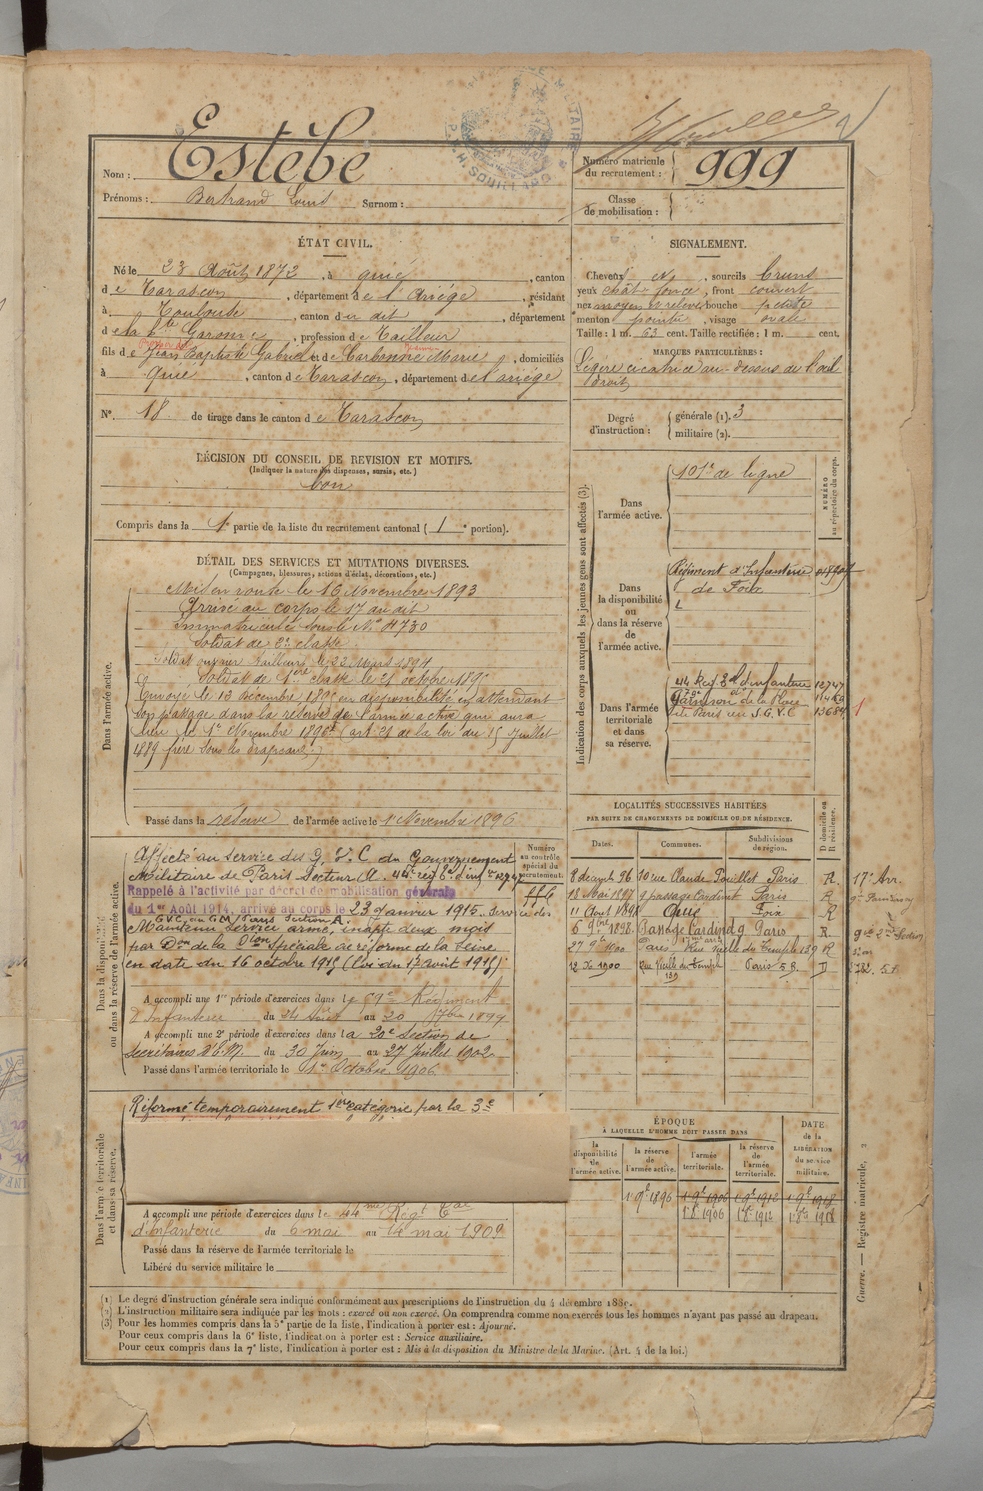 Nom : Estèbe
Prénoms : Bertrand Louis Surnom :
Numéro matricule du recrutement : 999
Classe de mobilisation :
ÉTAT CIVIL.
Né le 23 Août 1872, à quié, canton
de Tarascon, département de l'Ariège, résidant
à Toulouse, canton du dit, département
de la Hte Garonne, profession de Tailleur
fils de Jean Baptiste Gabriel et de Carbonne Marie, domiciliés
à Quié, canton de Tarascon, département de l'ariège
N° 18 de tirage dans le canton de Tarascon
SIGNALEMENT.
Cheveux, sourcils bruns
yeux chât. foncé, front couvert
nez moyen et relevé bouche petite
menton pointu, visage ovale
Taille : 1 m. 63 cent. Taille rectifiée : 1 m. cent.
MARQUES PARTICULIÈRES :
Légère cicatrice au-dessus de l'œil
droit
Degré d'instruction : générale (1). 3
militaire (2).
DÉCISION DU CONSEIL DE REVISION ET MOTIFS.
(Indiquer la nature des dispenses, sursis, etc.)
bon
Compris dans la 1e partie de la liste du recrutement cantonal (1e portion).
DÉTAIL DES SERVICES ET MUTATIONS DIVERSES.
(Campagnes, blessures, actions d'éclat, décorations, etc.)
Dans l'armée active.
Mis en route le 16 Novembre 1893
Arrivé au corps le 17 au dit
Immatriculé sous le N° 4730
Soldat de 2e classe
Soldat ouvrier tailleur le 22 Mars 1894
Soldat de 1ère classe le 21 octobre 1895
Envoyé le 13 Décembre 1895 en disponibilité en attendant
son passage dans la réserve de l'armée active qui aura
lieu le 1er Novembre 1896 (art. 21 de la loi du 15 Juillet
1889 frère sous les drapeaux.)
Passé dans la réserve de l'armée active le 1 Novembre 1896
Indication des corps auxquels les jeunes gens sont affectés (3).
NUMÉRO au répertoire du corps.
Dans l'armée active.
101e de ligne
Dans la disponibilité ou dans la réserve de l'armée active.
Régiment d'Infanterie
de Foix
Dans l'armée territoriale et dans sa réserve.
44 Reg t al d'infanterie 12747
Garnison de la Place
de Paris en S.G.V.C 13684
LOCALITÉS SUCCESSIVES HABITÉES
PAR SUITE DE CHANGEMENTS DE DOMICILE OU DE RÉSIDENCE.
Dates. Communes. Subdivisions de région. D domicile ou R résidence.
8 Xe août 96 10 rue Claude Pouillet Paris R. 17e Arr.
18 Mai 1897 9 passage Cardinet Paris R
11 Août 1898 Quié Foix R
5 9bre 1898 Passage Cardinet 9 Paris R.
27 9bre 1900 Paris Rue Vieille du Temple 139 R
12 Xbre 1900 Rue Vieille du Temple 139 Paris D
Dans la disponibilité ou dans la réserve de l'armée active.
Numéro au contrôle spécial du recrutement.
Affecté au service des G. V. C. du Gouvernement
Militaire de Paris Secteur A. 44e reg t al d'inf 12747
Rappelé à l'activité par décret de mobilisation générale
du 1er Août 1914, arrivé au corps le 23 Janvier 1915. Service des
G.V.C. en G.M. Paris Section A.
Maintenu service armé, inapte deux mois
par Don de la Con Spéciale de réforme de la Seine
en date du 16 octobre 1915 (Loi du 17 août 1915)
A accompli une 1re période d'exercices dans le 59e Régiment
d'Infanterie du 24 Août au 20 7bre 1899
A accompli une 2e période d'exercices dans la 20e Section de
Secrétaires d'E.M. du 30 Juin au 27 Juillet 1902
Passé dans l'armée territoriale le 1er Octobre 1906
Dans l'armée territoriale et dans sa réserve.
Réformé temporairement 1ère catégorie par la 3e
A accompli une période d'exercices dans le 44me Régt Tal
d'Infanterie du 6 mai au 14 mai 1909
Passé dans la réserve de l'armée territoriale le
Libéré du service militaire le
ÉPOQUE
À LAQUELLE L'HOMME DOIT PASSER DANS
la disponibilité de l'armée active. la réserve de l'armée active. l'armée territoriale. la réserve de l'armée territoriale. DATE de la LIBÉRATION du service militaire.
1 9e 1896 1 9e 1906 1 9e 1912 1 9e 1918
1 8e 1906 1 8e 1912 1 8e 1918
Guerre. — Registre matricule.
(1) Le degré d'instruction générale sera indiqué conformément aux prescriptions de l'instruction du 4 décembre 1889.
(2) L'instruction militaire sera indiquée par les mots : exercé ou non exercé. On comprendra comme non exercés tous les hommes n'ayant pas passé au drapeau.
(3) Pour les hommes compris dans la 5e partie de la liste, l'indication à porter est : Ajourné.
Pour ceux compris dans la 6e liste, l'indication à porter est : Service auxiliaire.
Pour ceux compris dans la 7e liste, l'indication à porter est : Mis à la disposition du Ministre de la Marine. (Art. 4 de la loi.)